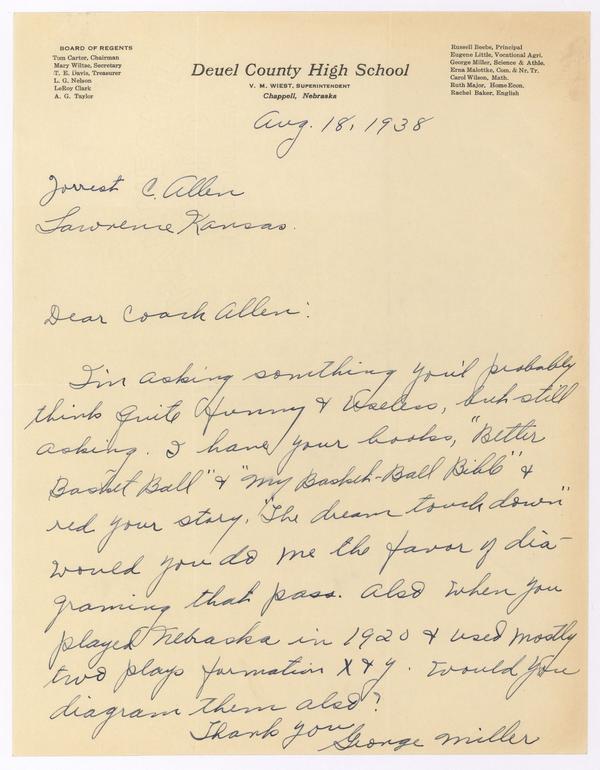 BOARD OF REGENTS
Tom Carter, Chairman
Mary Wiltse, Secretary
T. E. Davis, Treasurer
L. G. Nelson
LeRoy Clark
A. G. Taylor
Deuel County High School
V. M. WIEST, SUPERINTENDENT
Chappell, Nebraska
Russell Beebe, Principal
Eugene Little, Vocational Agri.
George Miller, Science & Athle.
Erna Malottke, Com. & Nr. Tr.
Carol Wilson, Math.
Ruth Major, Home Econ.
Rachel Baker, English
Aug. 18, 1938
Forrest C. Allen
Lawrence Kansas.
Dear Coach Allen:
I'm asking something you'd probably
think quite funny & useless, but still
asking. I have your books, "Better
Basket Ball" & "My Basket-Ball Bible" &
red your story, "The dream touch down"
would you do me the favor of dia-
graming that pass. Also when you
played Nebraska in 1920 & used mostly
two plays formation X & Y. Would you
diagram them also?
Thank you
George Miller